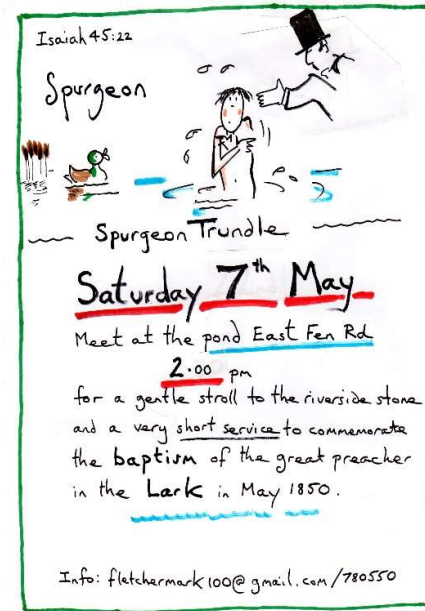 Isaiah 45:22
Spurgeon
Spurgeon Trundle
Saturday 7th May
Meet at the pond East Fen Rd
2.00 pm
for a gentle stroll to the riverside stone
and a very short service to commemorate
the baptism of the great preacher
in the Lark in May 1850.
Info: fletchermark100@gmail.com/780550